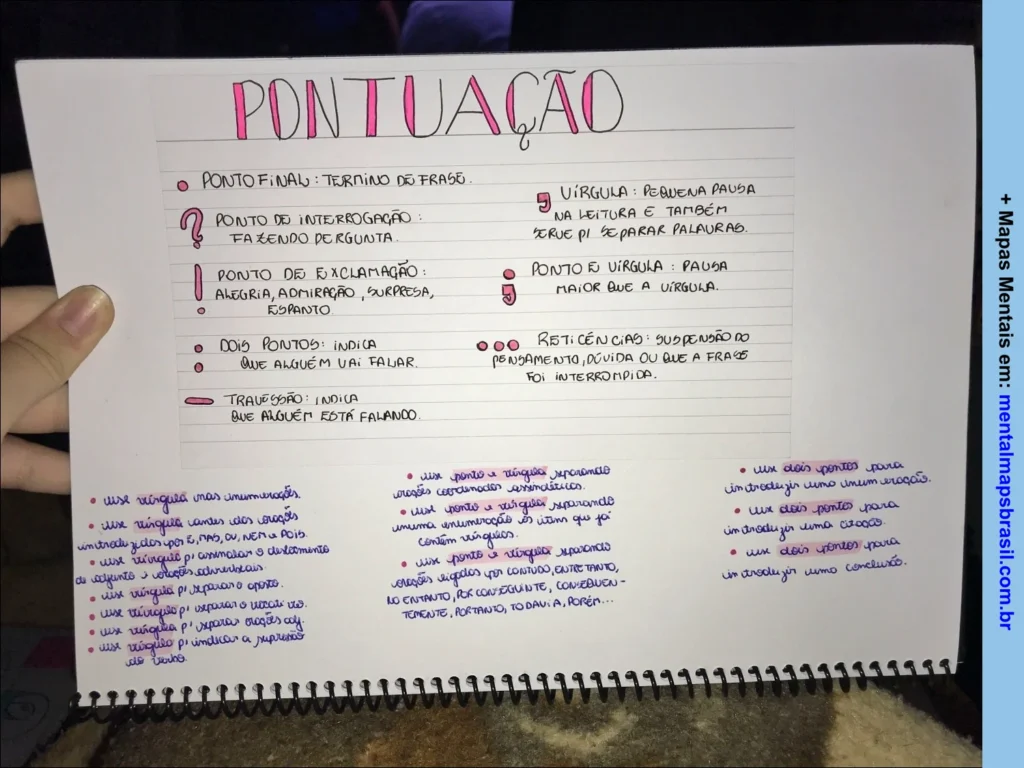 PONTUAÇÃO
PONTO FINAL: TERMINO DE FRASE.
PONTO DE INTERROGAÇÃO:
FAZENDO PERGUNTA.
PONTO DE EXCLAMAÇÃO:
ALEGRIA, ADMIRAÇÃO, SURPRESA,
ESPANTO.
DOIS PONTOS: INDICA
QUE ALGUÉM VAI FALAR.
TRAVESSÃO: INDICA
QUE ALGUÉM ESTÁ FALANDO.
VÍRGULA: PEQUENA PAUSA
NA LEITURA E TAMBÉM
SERVE P/ SEPARAR PALAVRAS.
PONTO E VÍRGULA: PAUSA
MAIOR QUE A VÍRGULA.
RETICÊNCIAS: SUSPENSÃO DO
PENSAMENTO, DÚVIDA OU QUE A FRASE
FOI INTERROMPIDA.
• use vírgula nas enumerações.
• use vírgula antes das orações
introduzidas por E, MAS, OU, NEM e POIS.
• use vírgula p/ assinalar o deslocamento
de adjunto e orações adverbiais.
• use vírgula p/ separar o aposto.
• use vírgula p/ separar o vocativo.
• use vírgula p/ separar orações adj.
• use vírgula p/ indicar a supressão
do verbo.
• use ponto e vírgula separando
orações coordenadas assindéticas.
• use ponto e vírgula separando
numa enumeração os itens que já
contêm vírgulas.
• use ponto e vírgula separando
orações ligadas por CONTUDO, ENTRETANTO,
NO ENTANTO, POR CONSEGUINTE, CONSEQUEN-
TEMENTE, PORTANTO, TODAVIA, PORÉM...
• use dois pontos para
introduzir uma enumeração.
• use dois pontos para
introduzir uma citação.
• use dois pontos para
introduzir uma conclusão.
+ Mapas Mentais em: mentalmapsbrasil.com.br